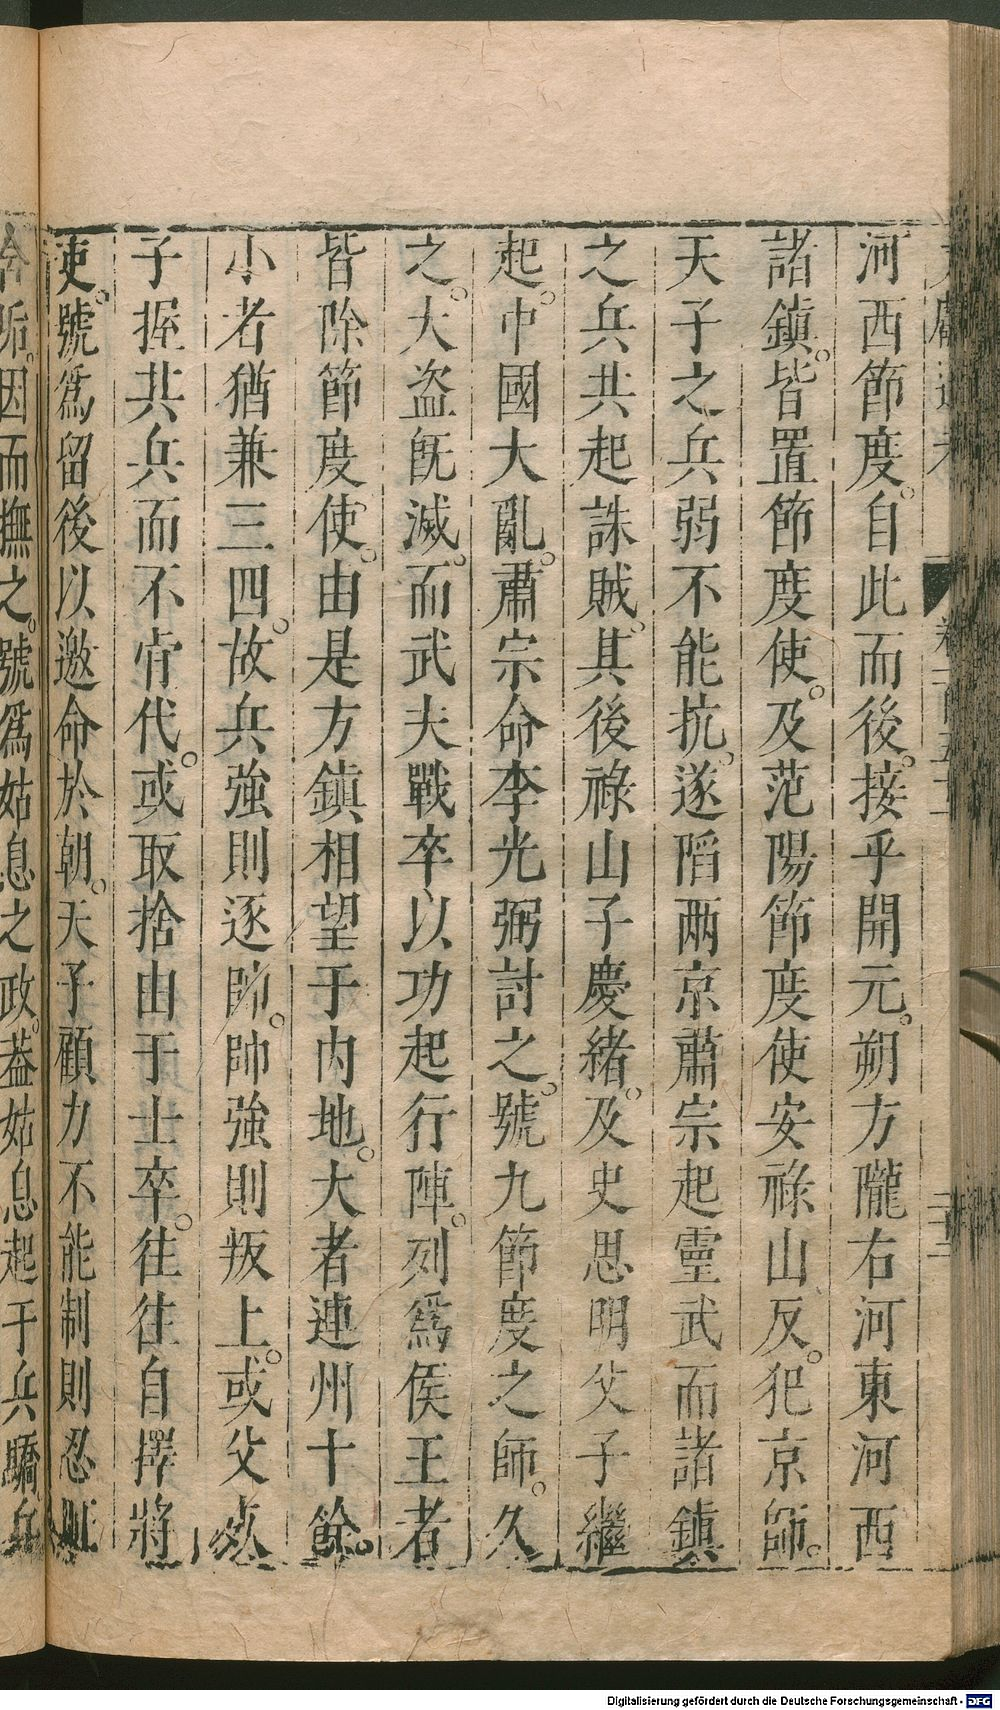 河西節度。自此而後。接乎開元。朔方隴右河東河西
諸鎮。皆置節度使。及范陽節度使安祿山反。犯京師。
天子之兵弱不能抗。遂陷兩京肅宗起靈武而諸鎮
之兵共起誅賊。其後祿山子慶緒。及史思明父子繼
起。中國大亂。肅宗命李光弼討之。號九節度之師。久
之。大盜既滅。而武夫戰卒以功起行陣。列爲侯王者
皆除節度使。由是方鎮相望于内地。大者連州十餘。
小者猶兼三四。故兵強則逐帥。帥強則叛上。或父死
子握其兵而不肯代。或取捨由于士卒。往往自擇將
吏。號爲留後以邀命於朝。天子顧力不能制則忍
含垢。因而撫之。號爲姑息之政。葢姑息起于兵驕。兵
Digitalisierung gefördert durch die Deutsche Forschungsgemeinschaft - DFG